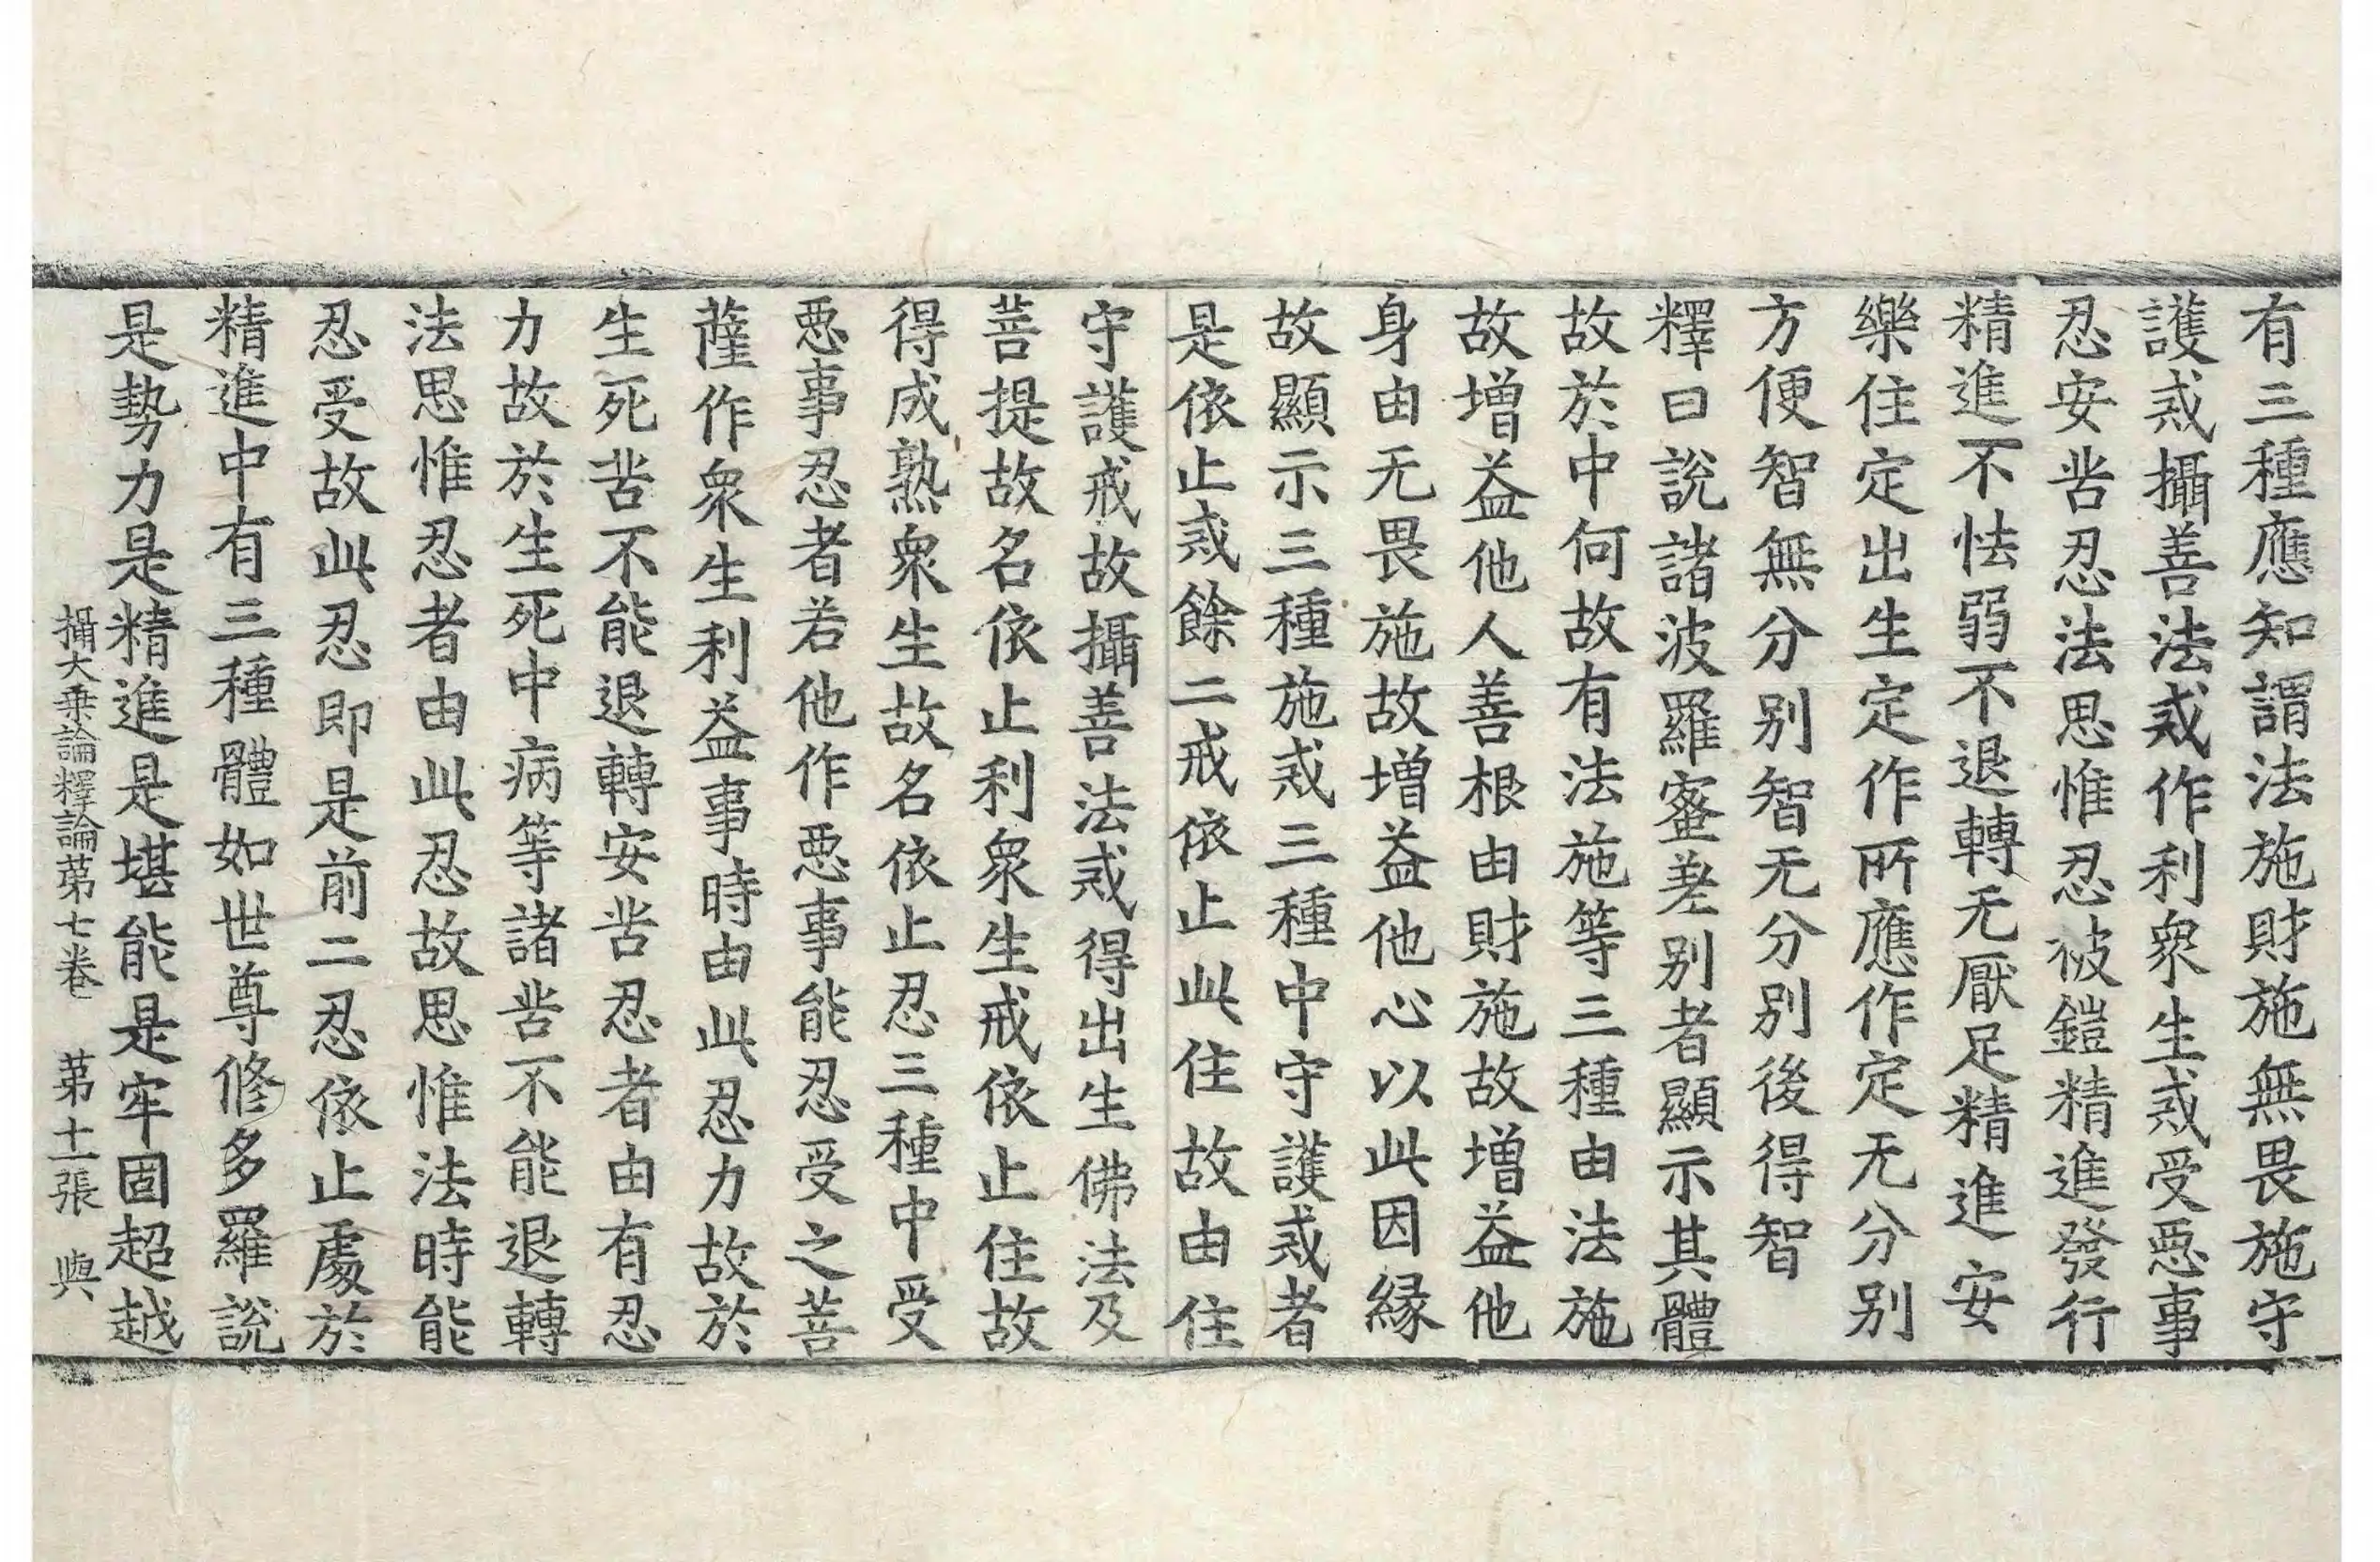 有三種應知謂法施財施無畏施守
護戒攝善法戒作利衆生戒受惡事
忍安苦忍法思惟忍被鎧精進發行
精進不怯弱不退轉无厭足精進安
樂住定出生定作所應作定无分别
方便智無分别智无分别後得智
釋曰說諸波羅蜜差别者顯示其體
故於中何故有法施等三種由法施
故增益他人善根由財施故增益他
身由无畏施故增益他心以此因縁
故顯示三種施戒三種中守護戒者
是依止戒餘二戒依止此住故由住
守護戒故攝善法戒得出生佛法及
菩提故名依止利衆生戒依止住故
得成熟衆生故名依止忍三種中受
惡事忍者若他作惡事能忍受之菩
薩作衆生利益事時由此忍力故於
生死苦不能退轉安苦忍者由有忍
力故於生死中病等諸苦不能退轉
法思惟忍者由此忍故思惟法時能
忍受故此忍即是前二忍依止處於
精進中有三種體如世尊修多羅說
是勢力是精進是堪能是牢固超越
攝大乗論釋論第七卷　第十一張　與